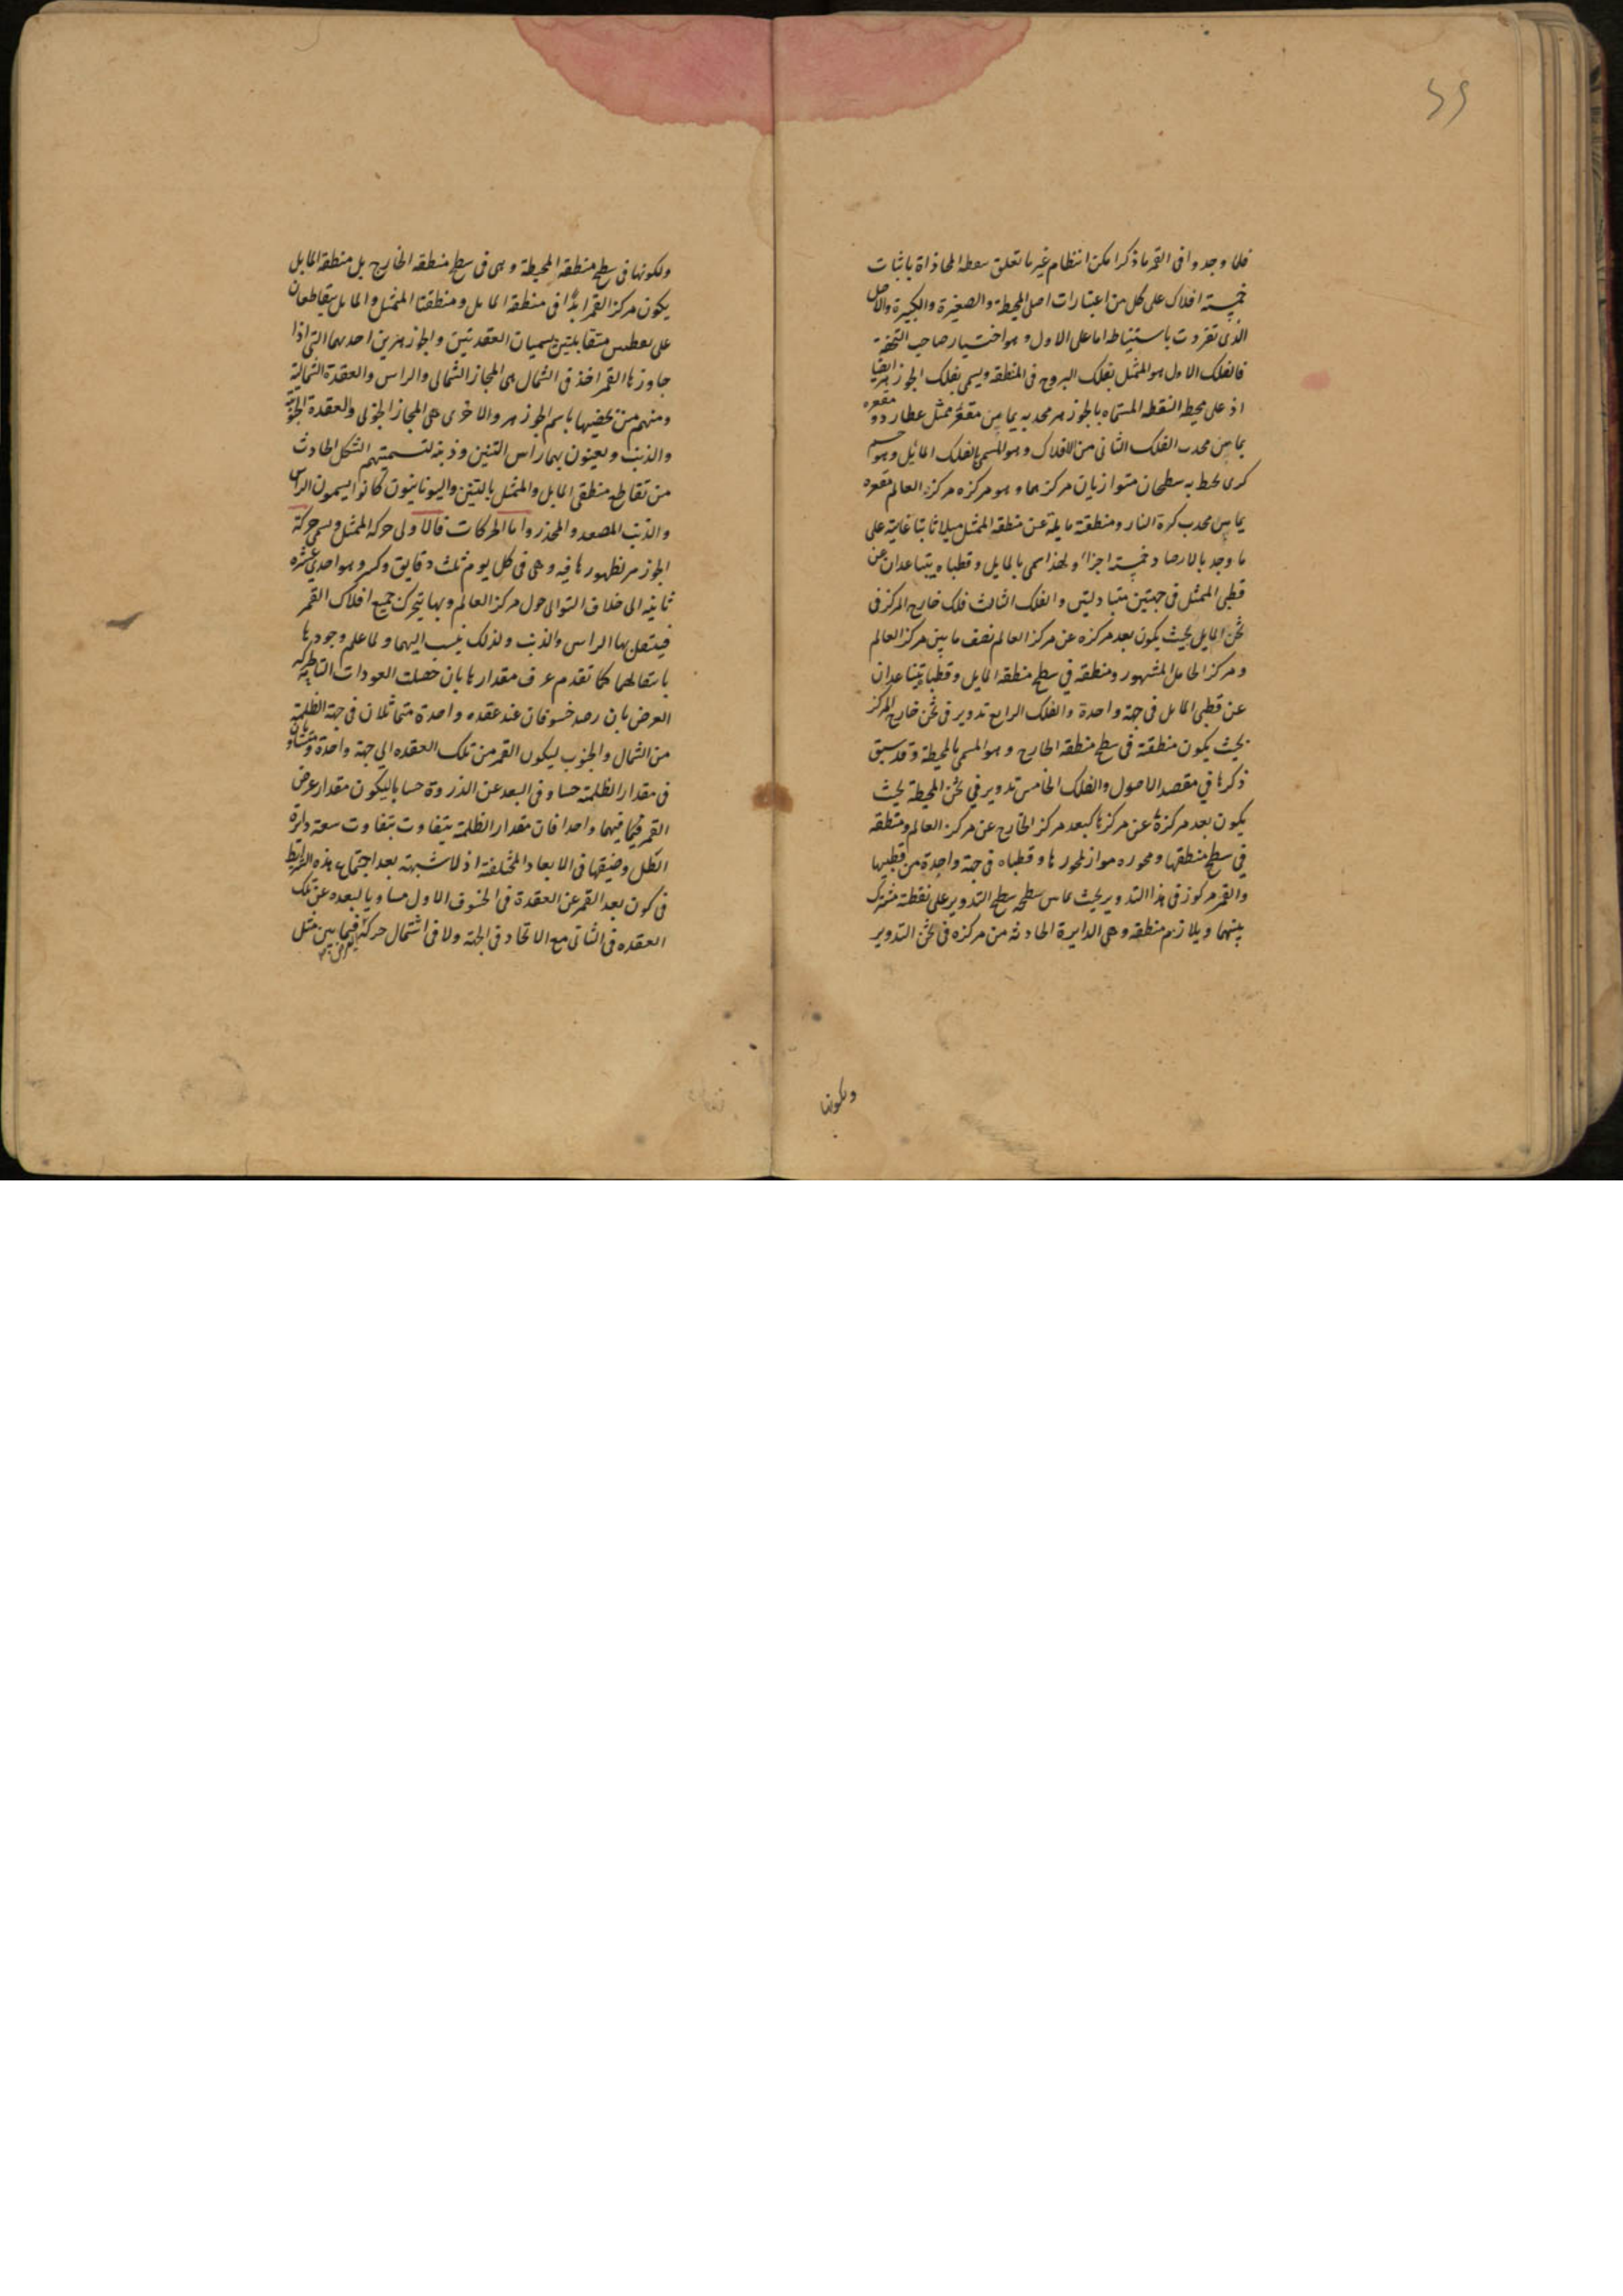 فلما وجدوا فى القمر ما ذكر امكن انتظام غير ما تعلق بنقطه المحاذاة باثبات
خمسته افلاك على كل من اعتبارات اصل المحيطة والصغيرة والكبيرة والاصل
الذى تفردت باستنباطه اما على الاول وهو اختيار صاحب التحفة
فالفلك الاول هو الممثل بفلك البروج فى المنطقه ويسمى بفلك الجوزهر ايضا
اذ على محيطه النقطه المسماه بالجوزهر محدبه يماس مقعر ممثل عطارد و مقعره
يماس محدب الفلك الثانى من الافلاك وهو المسمى بالفلك المائل وهو جسم
كرى يحيط به سطحان متوازيان مركزهما وهو مركزه مركز العالم مقعره
يماس محدب كرة النار ومنطقته مايلة عن منطقه الممثل ميلا ثابتا غايته على
ما وجد بالارصاد خمسته اجزاء ولهذا سمى بالمايل وقطباه يتباعدان عن
قطبى الممثل فى جهتين متبادلتين والفلك الثالث فلك خارج المركز فى
ثخن المايل بحيث يكون بعد مركزه عن مركز العالم نصف ما بين مركز العالم
ومركز الحامل المشهور ومنطقه فى سطح منطقه المايل وقطبا يتباعدان
عن قطبى المايل فى جهة واحدة والفلك الرابع تدوير فى ثخن خارج المركز
بحيث يكون منطقته فى سطح منطقه الخارج وهو المسمى بالمحيطة وقد سبق
ذكرها فى مقصد الاصول والفلك الخامس تدوير فى ثخن المحيطة بحيث
يكون بعد مركزه عن مركزها كبعد مركز الخارج عن مركز العالم ومنطقه
فى سطح منطقها ومحوره مواز لمحورها وقطباه فى جهة واحدة من قطبيها
والقمر مركوز فى هذا التدوير بحيث يماس سطحه سطح التدوير على نقطة مشترك
بينهما ويلازم منطقه وهى الدايرة الحادثه من مركزه فى ثخن التدوير
ولكونها
ولكونها فى سطح منطقه المحيطة وهى فى سطح منطقه الخارج بل منطقه المايل
يكون مركز القمر ابدا فى منطقه المايل ومنطقتا الممثل والمايل يتقاطعان
على نقطتين متقابلتين يسميان العقدتين والجوزهرين احديهما التى اذا
جاوزها القمر اخذ فى الشمال هى المجاز الشمالى والراس والعقدة الشمالية
ومنهم من يخصها باسم الجوزهر والاخرى هى المجاز الجنوبى والعقدة الجنوبية
والذنب ويعنون بهما راس التنين وذنبه لتسميتهم الشكل الحادث
من تقاطع منطقتى المايل والممثل بالتنين واليونانيون كانوا يسمون الراس
والذنب المصعد والمحدر واما الحركات فالاولى حركه الممثل ويسمى حركة
الجوزهر لظهورها فيه وهى فى كل يوم ثلث دقايق وكسر وهو احدى عشره
ثانيه الى خلاف التوالى حول مركز العالم وبها يتحرك جميع افلاك القمر
فينتقل بها الراس والذنب ولذلك نسب اليهما ولما علم وجودها
بانتقالهما كما تقدم عرف مقدارها بان حصلت العودات التامه لحركه
العرض بان رصد خسوفان عند عقده واحدة متماثلان فى جهة الظلمة
من الشمال والجنوب ليكون القمر من تلك العقده الى جهة واحدة ومتساويان
فى مقدار الظلمة حسا وفى البعد عن الذروة حسابا ليكون مقدار عرض
القمر فيهما واحدا فان مقدار الظلمة يتفاوت بتفاوت سعة دايرة
الظل وضيقها فى الابعاد المختلفة اذ لا شبهة بعد اجتماع هذه الشرايط
فى كون بعد القمر عن العقدة فى الخسوف الاول مساويا لبعده عن تلك
العقده فى الثانى مع الاتحاد فى الجهة ولا فى اشتمال حركة العرض فيما بين مثل